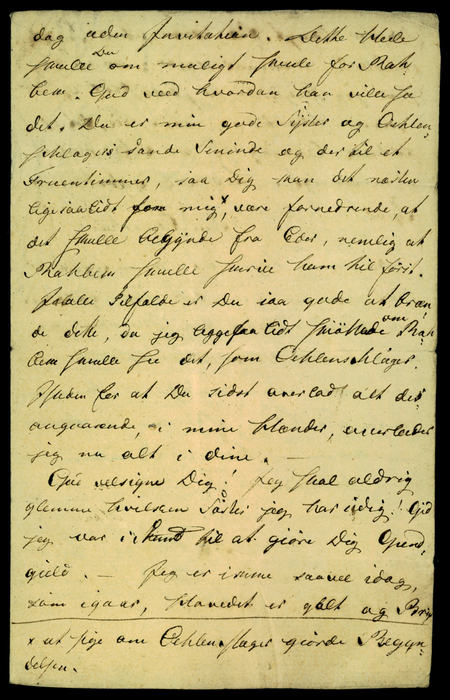 dag uden Invitation. Dette Hele
skulle Du om muligt skrive for Rah-
bek. Gud veed hvordan han ville ta
det. Du er min gode Søster og Oehlen-
schlägers sande Veninde og der til et
Fruentimmer, saa Dig kan det næsten
ligesaa lidt som mig x, være fornedrende, at
det skulle begÿnde fra Eder, nemlig at
Rahbek skulle skrive ham til først.
I alle Tilfælde er Du saa gode at bræn-
de dette, da jeg ligesaa lidt om Rah-
bek skulle see det, som Oehlenschläger.
Ihuden for at Du sidst overlod alt det
angaaende, i mine Hænder, overlader
jeg nu alt i dine. —
Gud velsigne Dig! Jeg skal aldrig
glemme hvilken Søster jeg har i dig! Gid
jeg var i Stand til at giøre Dig Giend-
gield. — Jeg er imme saavel idag,
som igaar, Hovedet er galt og Brÿs
x at sige om Oehlenslager giorde Begyn-
delsen.